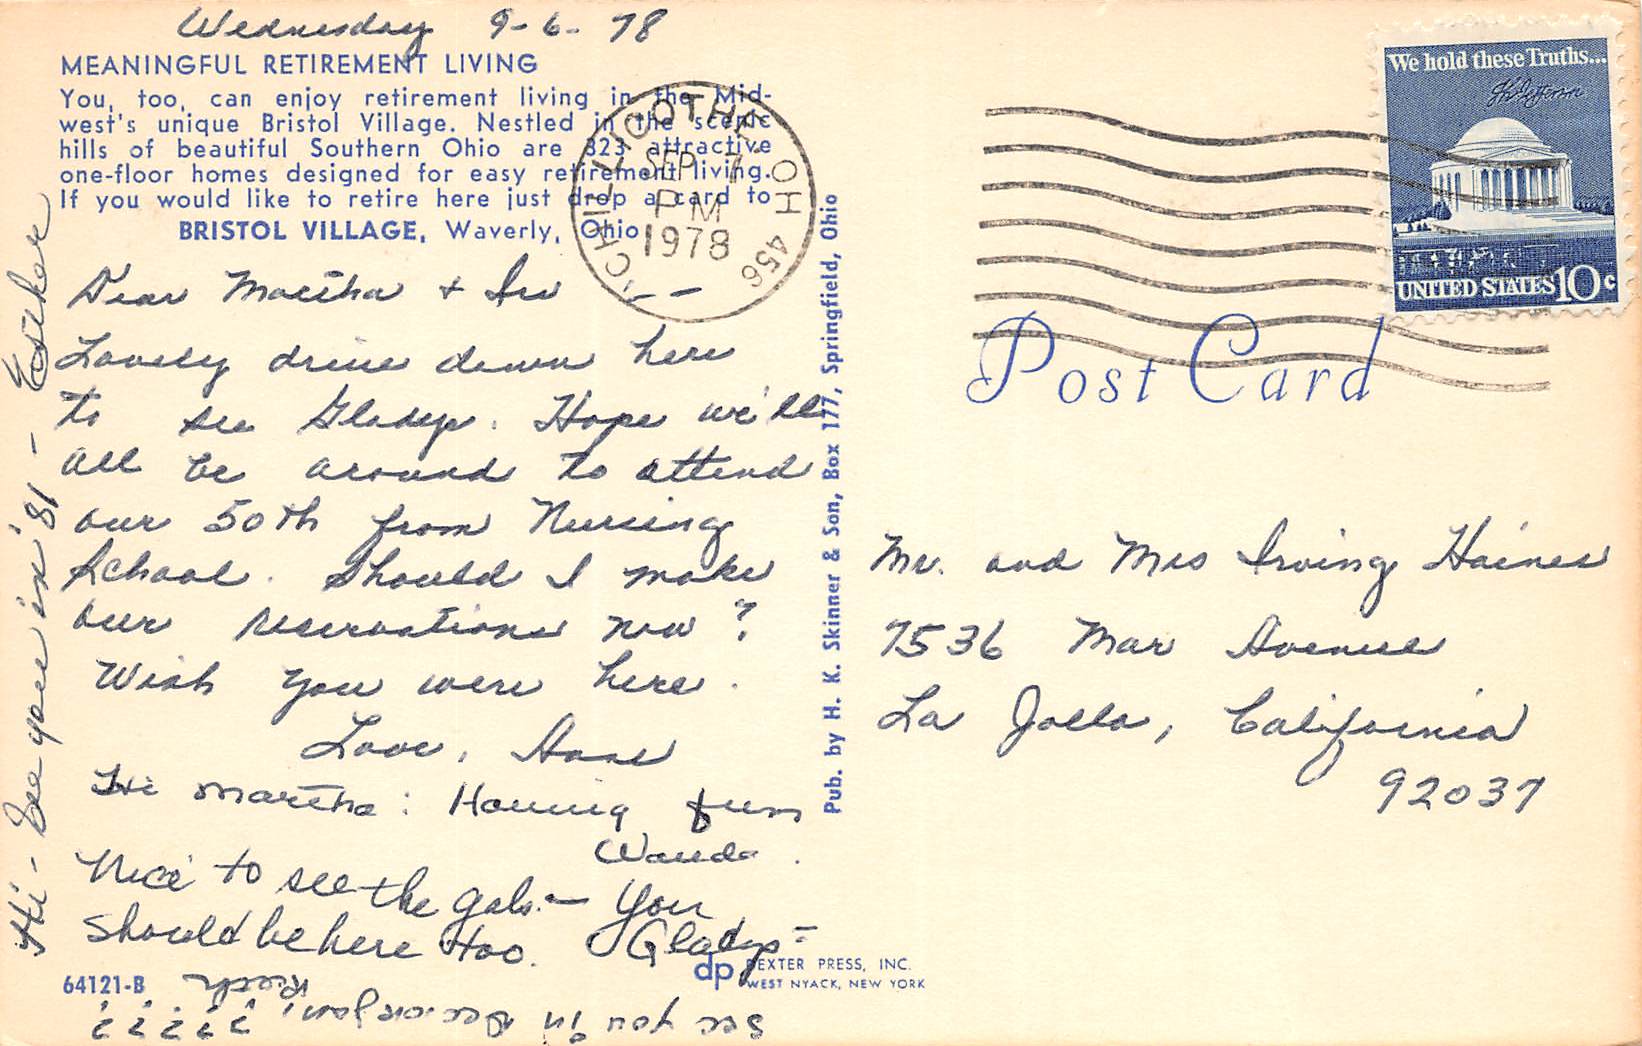 Wednesday 9-6-78
MEANINGFUL RETIREMENT LIVING
You, too, can enjoy retirement living in the Mid-
west's unique Bristol Village. Nestled in the scenic
hills of beautiful Southern Ohio are 323 attractive
one-floor homes designed for easy retirement living.
If you would like to retire here just drop a card to
BRISTOL VILLAGE, Waverly, Ohio
Dear Martha + Irv --
Lovely drive down here
to see Gladys. Hope we'll
all be around to attend
our 50th from Nursing
School. Should I make
our reservations now?
Wish you were here.
Love, Anne
Hi Martha: Having fun
Wanda.
Nice to see the gals - You
should be here too. Gladys =
See you in Dec. or Jan, ? ? ? ? ?
Ruth
Hi - See you in '81 - Esther
64121-B
dp DEXTER PRESS, INC.
WEST NYACK, NEW YORK
Pub. by H. K. Skinner & Son, Box 177, Springfield, Ohio
CHILLICOTHE OH 456
SEP 7
PM
1978
We hold these Truths...
Th Jefferson
UNITED STATES 10c
Post Card
Mr. and Mrs Irving Haines
7536 Mar Avenue
La Jolla, California
92037